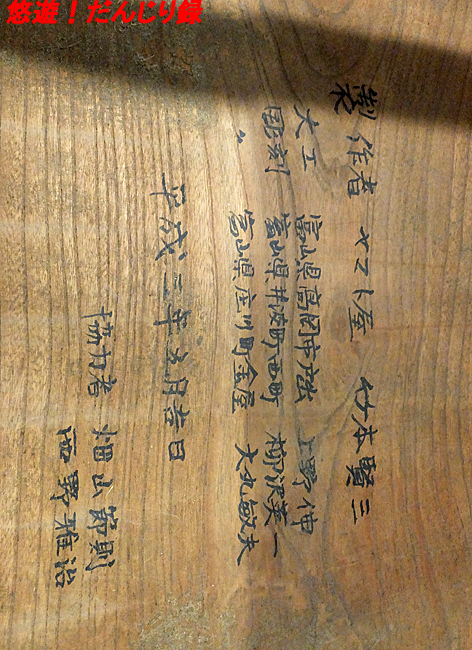 悠遊！だんじり録
製作者 ヤマト屋 竹本賢三
大工 富山県高岡市 上野伸
彫刻 富山県井波町西町 柳沢英一
〃 富山県庄川町金屋 大丸敏夫
平成二年五月吉日
協力者 畑山節則
西野雅治